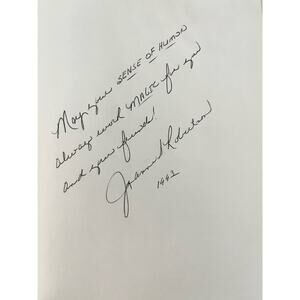 May your SENSE OF HUMOR
always work MAGIC for you
and your friend!
Joanne Robertson
1992